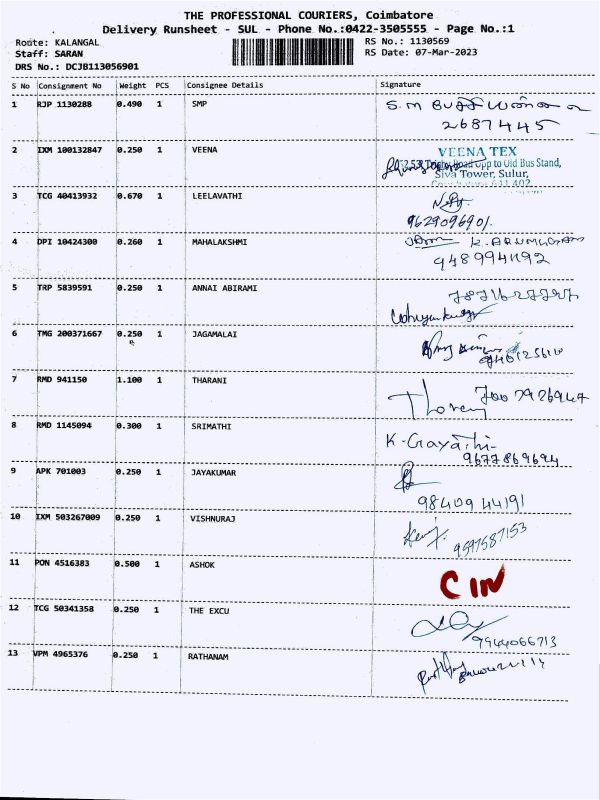 THE PROFESSIONAL COURIERS, Coimbatore
Delivery Runsheet - SUL - Phone No.:0422-3505555 - Page No.:1
Route: KALANGAL
RS No.: 1130569
Staff: SARAN
RS Date: 07-Mar-2023
DRS No.: DCJB113056901
S No Consignment No Weight PCS Consignee Details Signature
1 RJP 1130288 0.490 1 SMP
2687445
2 IXM 100132847 0.250 1 VEENA
VEENA TEX
Opp to Old Bus Stand,
Siva Tower, Sulur,
3 TCG 40413932 0.670 1 LEELAVATHI
9629096901.
4 DPI 10424300 0.260 1 MAHALAKSHMI
K. ARUMUGAM
5 TRP 5839591 0.250 1 ANNAI ABIRAMI
6 TMG 200371667 0.250 1 JAGAMALAI
7 RMD 941150 1.100 1 THARANI
8 RMD 1145094 0.300 1 SRIMATHI
K-Gayathi-
9677869694
9 APK 701003 0.250 1 JAYAKUMAR
9840944191
10 IXM 503267009 0.250 1 VISHNURAJ
9597587153
11 PON 4516383 0.500 1 ASHOK
C IN
12 TCG 50341358 0.250 1 THE EXCU
9944066713
13 VPM 4965376 0.250 1 RATHANAM